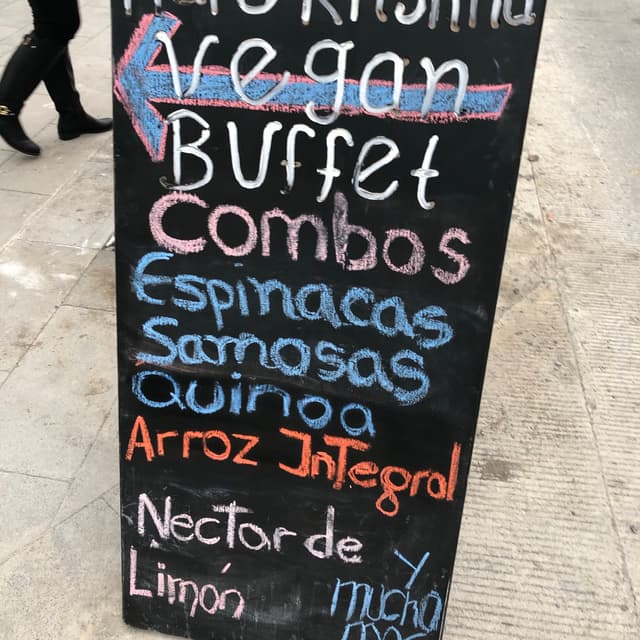 Hare Krishna
Vegan
Buffet
Combos
Espinacas
Samosas
Quinoa
Arroz Integral
Nectar de
Limón
y
mucho
mas